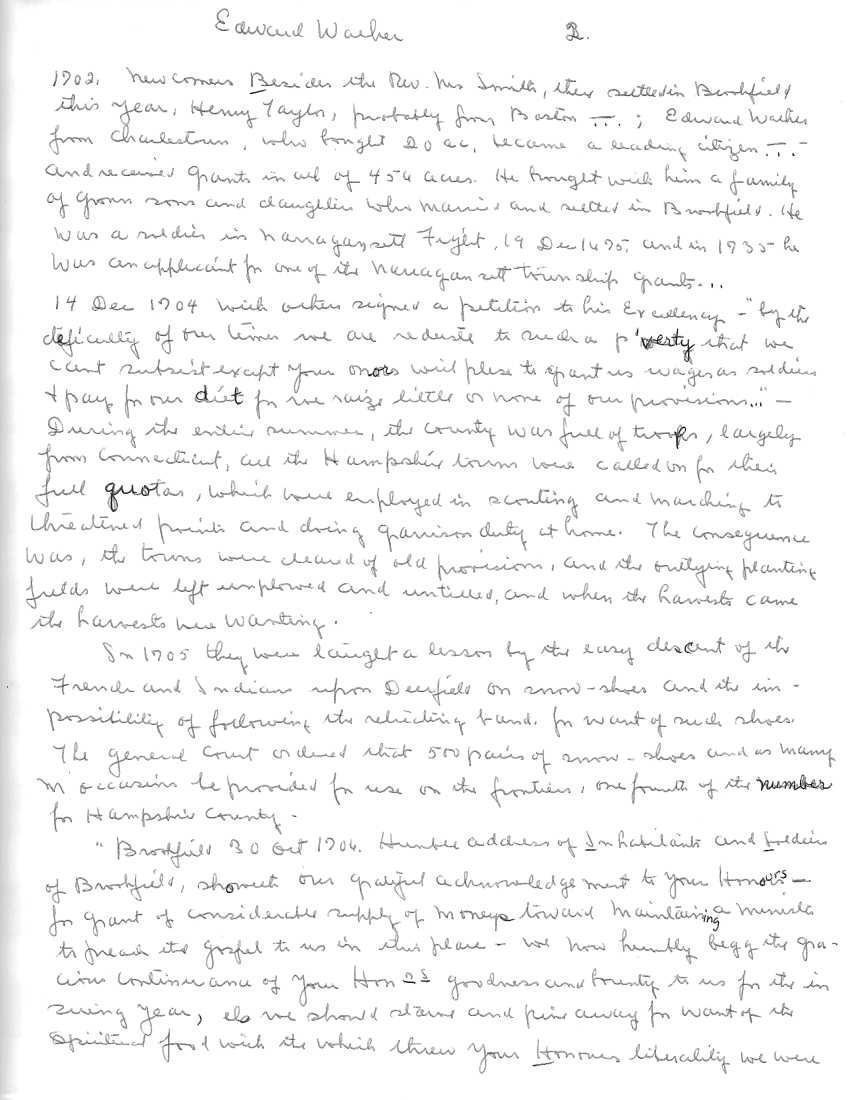 Edward Walker 2.
1702. Newcomers Besides the Rev. Mr Smith, there settled in Brookfield
this year, Henry Taylor, probably from Boston ...; Edward Walker
from Charlestown, who bought 20 ac, became a leading citizen ...
and received grants in all of 454 acres. He brought with him a family
of grown sons and daughters who married and settled in Brookfield. He
was a soldier in Narragansett Fight, 19 Dec 1675, and in 1735 he
was an applicant for one of the Narragansett township grants...
14 Dec 1704 with others signed a petition to his Excellency - "by the
deficulty of our times we are reduste to such a p'verty that we
cant subsist except your onors will plese to grant us wages as soldiers
& pay for our diet for we raize little or none of our provisions..." -
During the entire summer, the county was full of troops, largely
from Connecticut, all the Hampshire towns were called on for their
full quotas, which were employed in scouting and marching to
threatened points and doing garrison duty at home. The consequence
was, the towns were cleared of old provisions, and the outlying planting
fields were left unplowed and untilled, and when the harvests came
the harvests were wanting.
In 1705 they were taught a lesson by the easy descent of the
French and Indians upon Deerfield on snow-shoes and the im-
possibility of following the retreating band, for want of such shoes.
The general Court ordered that 500 pairs of snow-shoes and as many
m' occasins be provided for use on the frontiers, one fourth of the number
for Hampshire County -
"Brookfield 30 Oct 1706. Humble address of Inhabitants and Soldiers
of Brookfield, showeth our grateful acknowledgement to your Honours -
for grant of considerable supply of money toward maintaining a minister
to preach the gospel to us in this place - we now humbly begg the gra-
cious continuance of your Honrs goodness and bounty to us for the in
suing year, els we should starve and pine away for want of the
Spiritual food with the which threw your Honours liberality we were